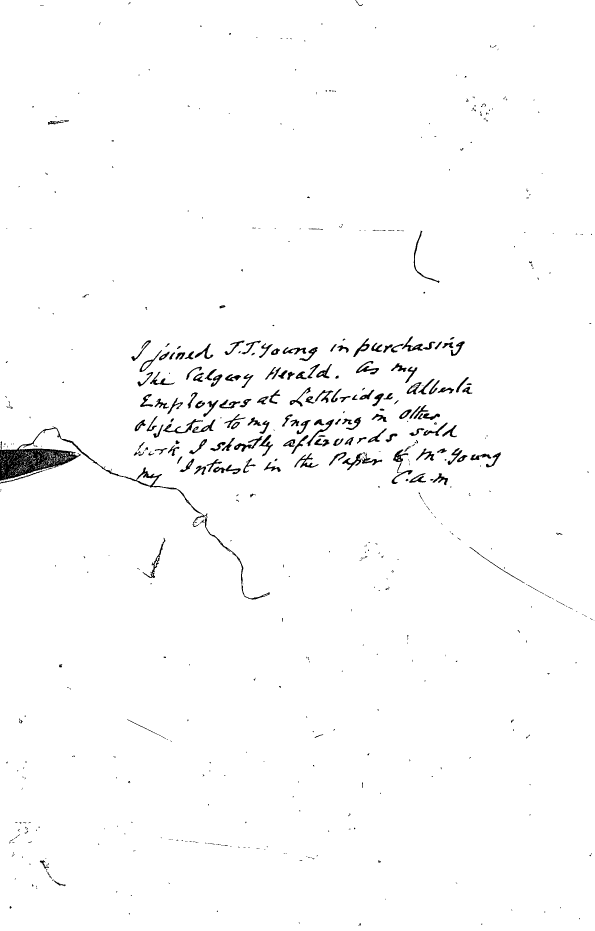 I joined J.J. Young in purchasing
The Calgary Herald. As my
Employers at Lethbridge, Alberta
objected to my Engaging in other
work, I shortly afterwards sold
my Interest in the Paper to Mr. Young
C.A.M.